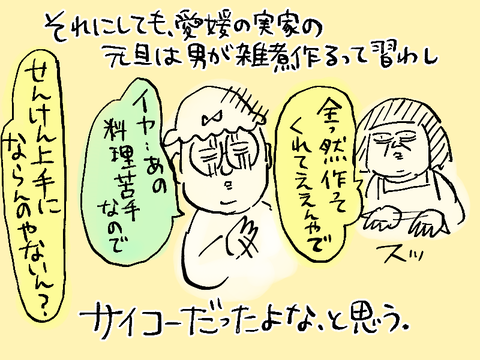 それにしても、愛媛の実家の
元旦は男が雑煮作るって習わし
全っ然作って
くれてええんやで
スッ
イヤ…あの
料理苦手
なので
せんけん上手に
ならんのやないん？
サイコーだったよな、と思う。